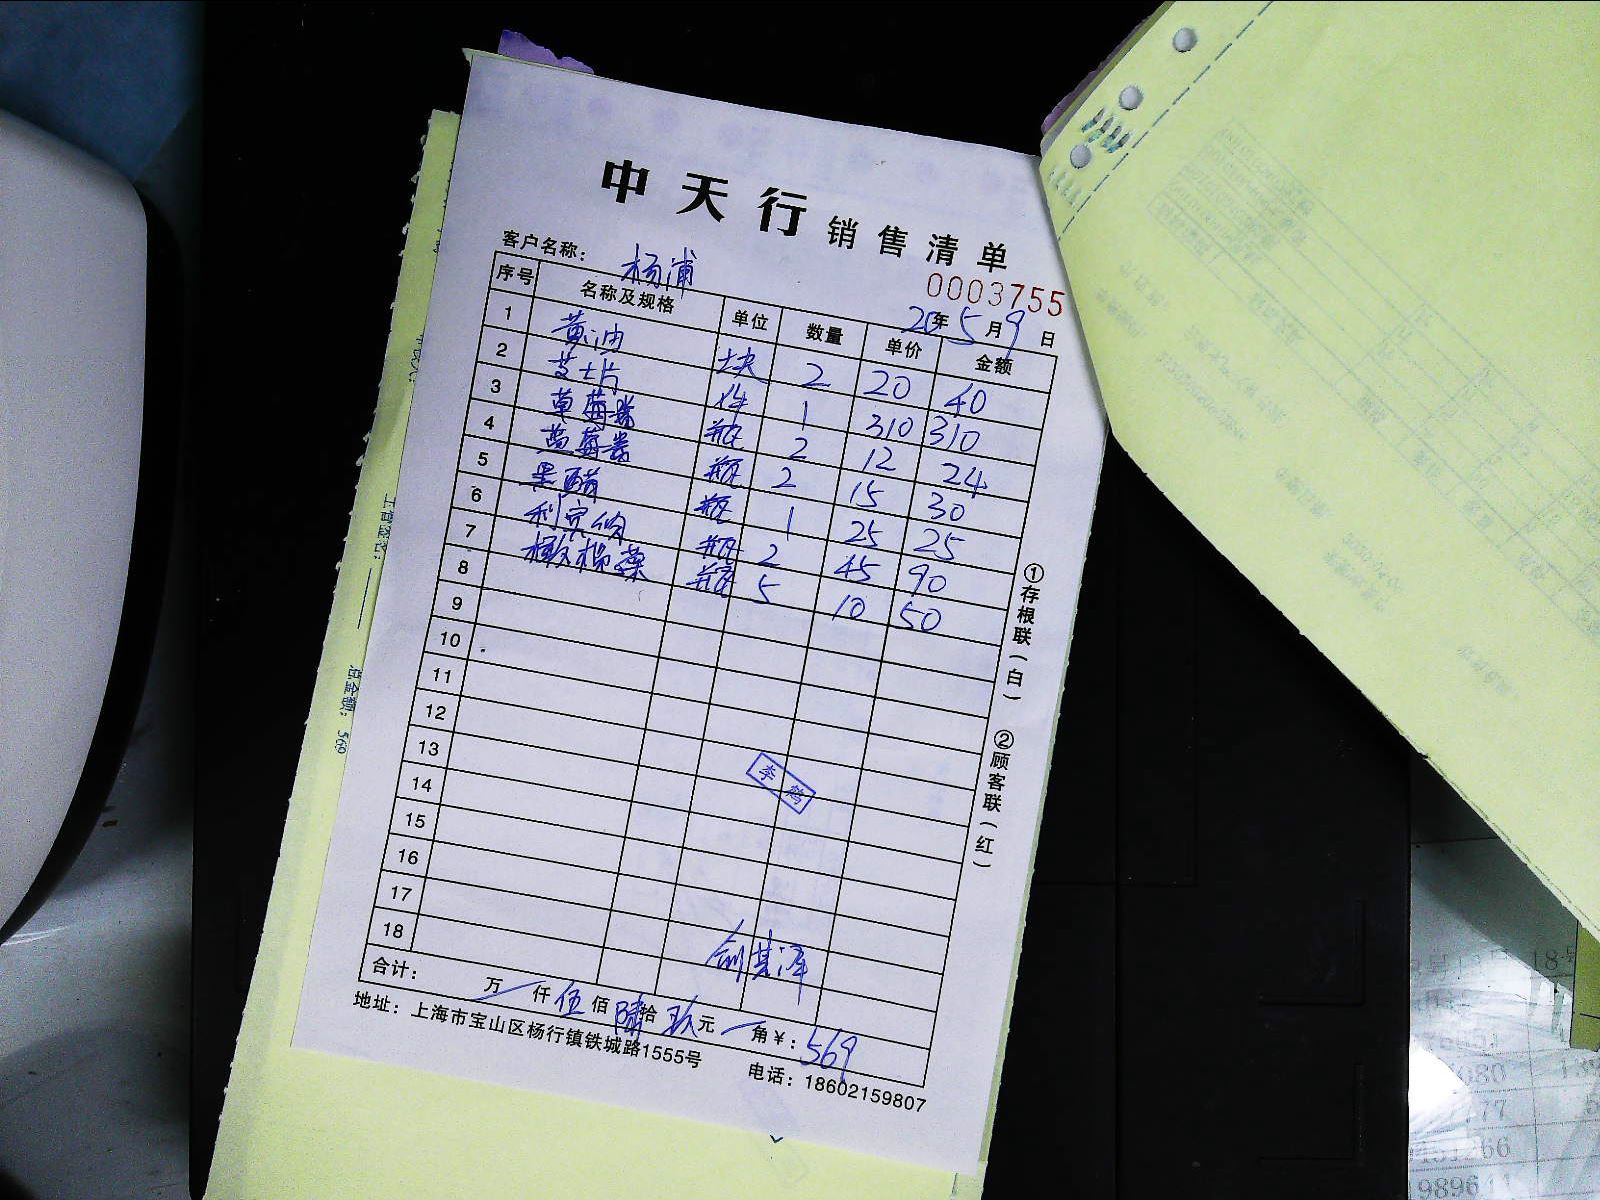 中天行销售清单
客户名称：杨浦
0003755
20年5月9日
序号 名称及规格 单位 数量 单价 金额
1 黄油 块 2 20 40
2 芝士片 件 1 310 310
3 草莓酱 瓶 2 12 24
4 蓝莓酱 瓶 2 15 30
5 黑醋 瓶 1 25 25
6 利宾纳 瓶 2 45 90
7 橄榄菜 瓶 5 10 50
8
9
10
11
12
13
14
15
16
17
18
李 鹤
合计： 万 仟 伍 佰 陆 拾 玖 元 角 ￥：569
地址：上海市宝山区杨行镇铁城路1555号 电话：18602159807
①存根联（白）
②顾客联（红）
总金额：569